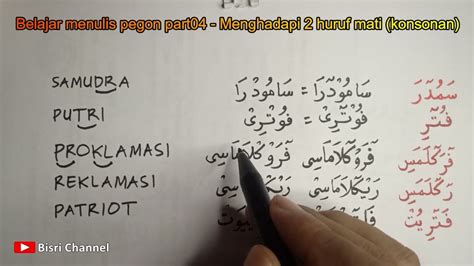 Belajar menulis pegon part04 - Menghadapi 2 huruf mati (konsonan)
SAMUDRA سَامُوْدْرَا = سَامُوْدْرَا سَمُدْرَ
PUTRI فُوْتْرِيْ = فُوْتْرِيْ فُتْرِ
PROKLAMASI فْرَوكْلَامَاسِى فْرَوكْلَامَاسِى فْرَكْلَمَسِ
REKLAMASI رَيكْلَامَاسِى رَيكْلَامَاسِى رَكْلَمَسِ
PATRIOT فَتْرِيُتْ
Bisri Channel